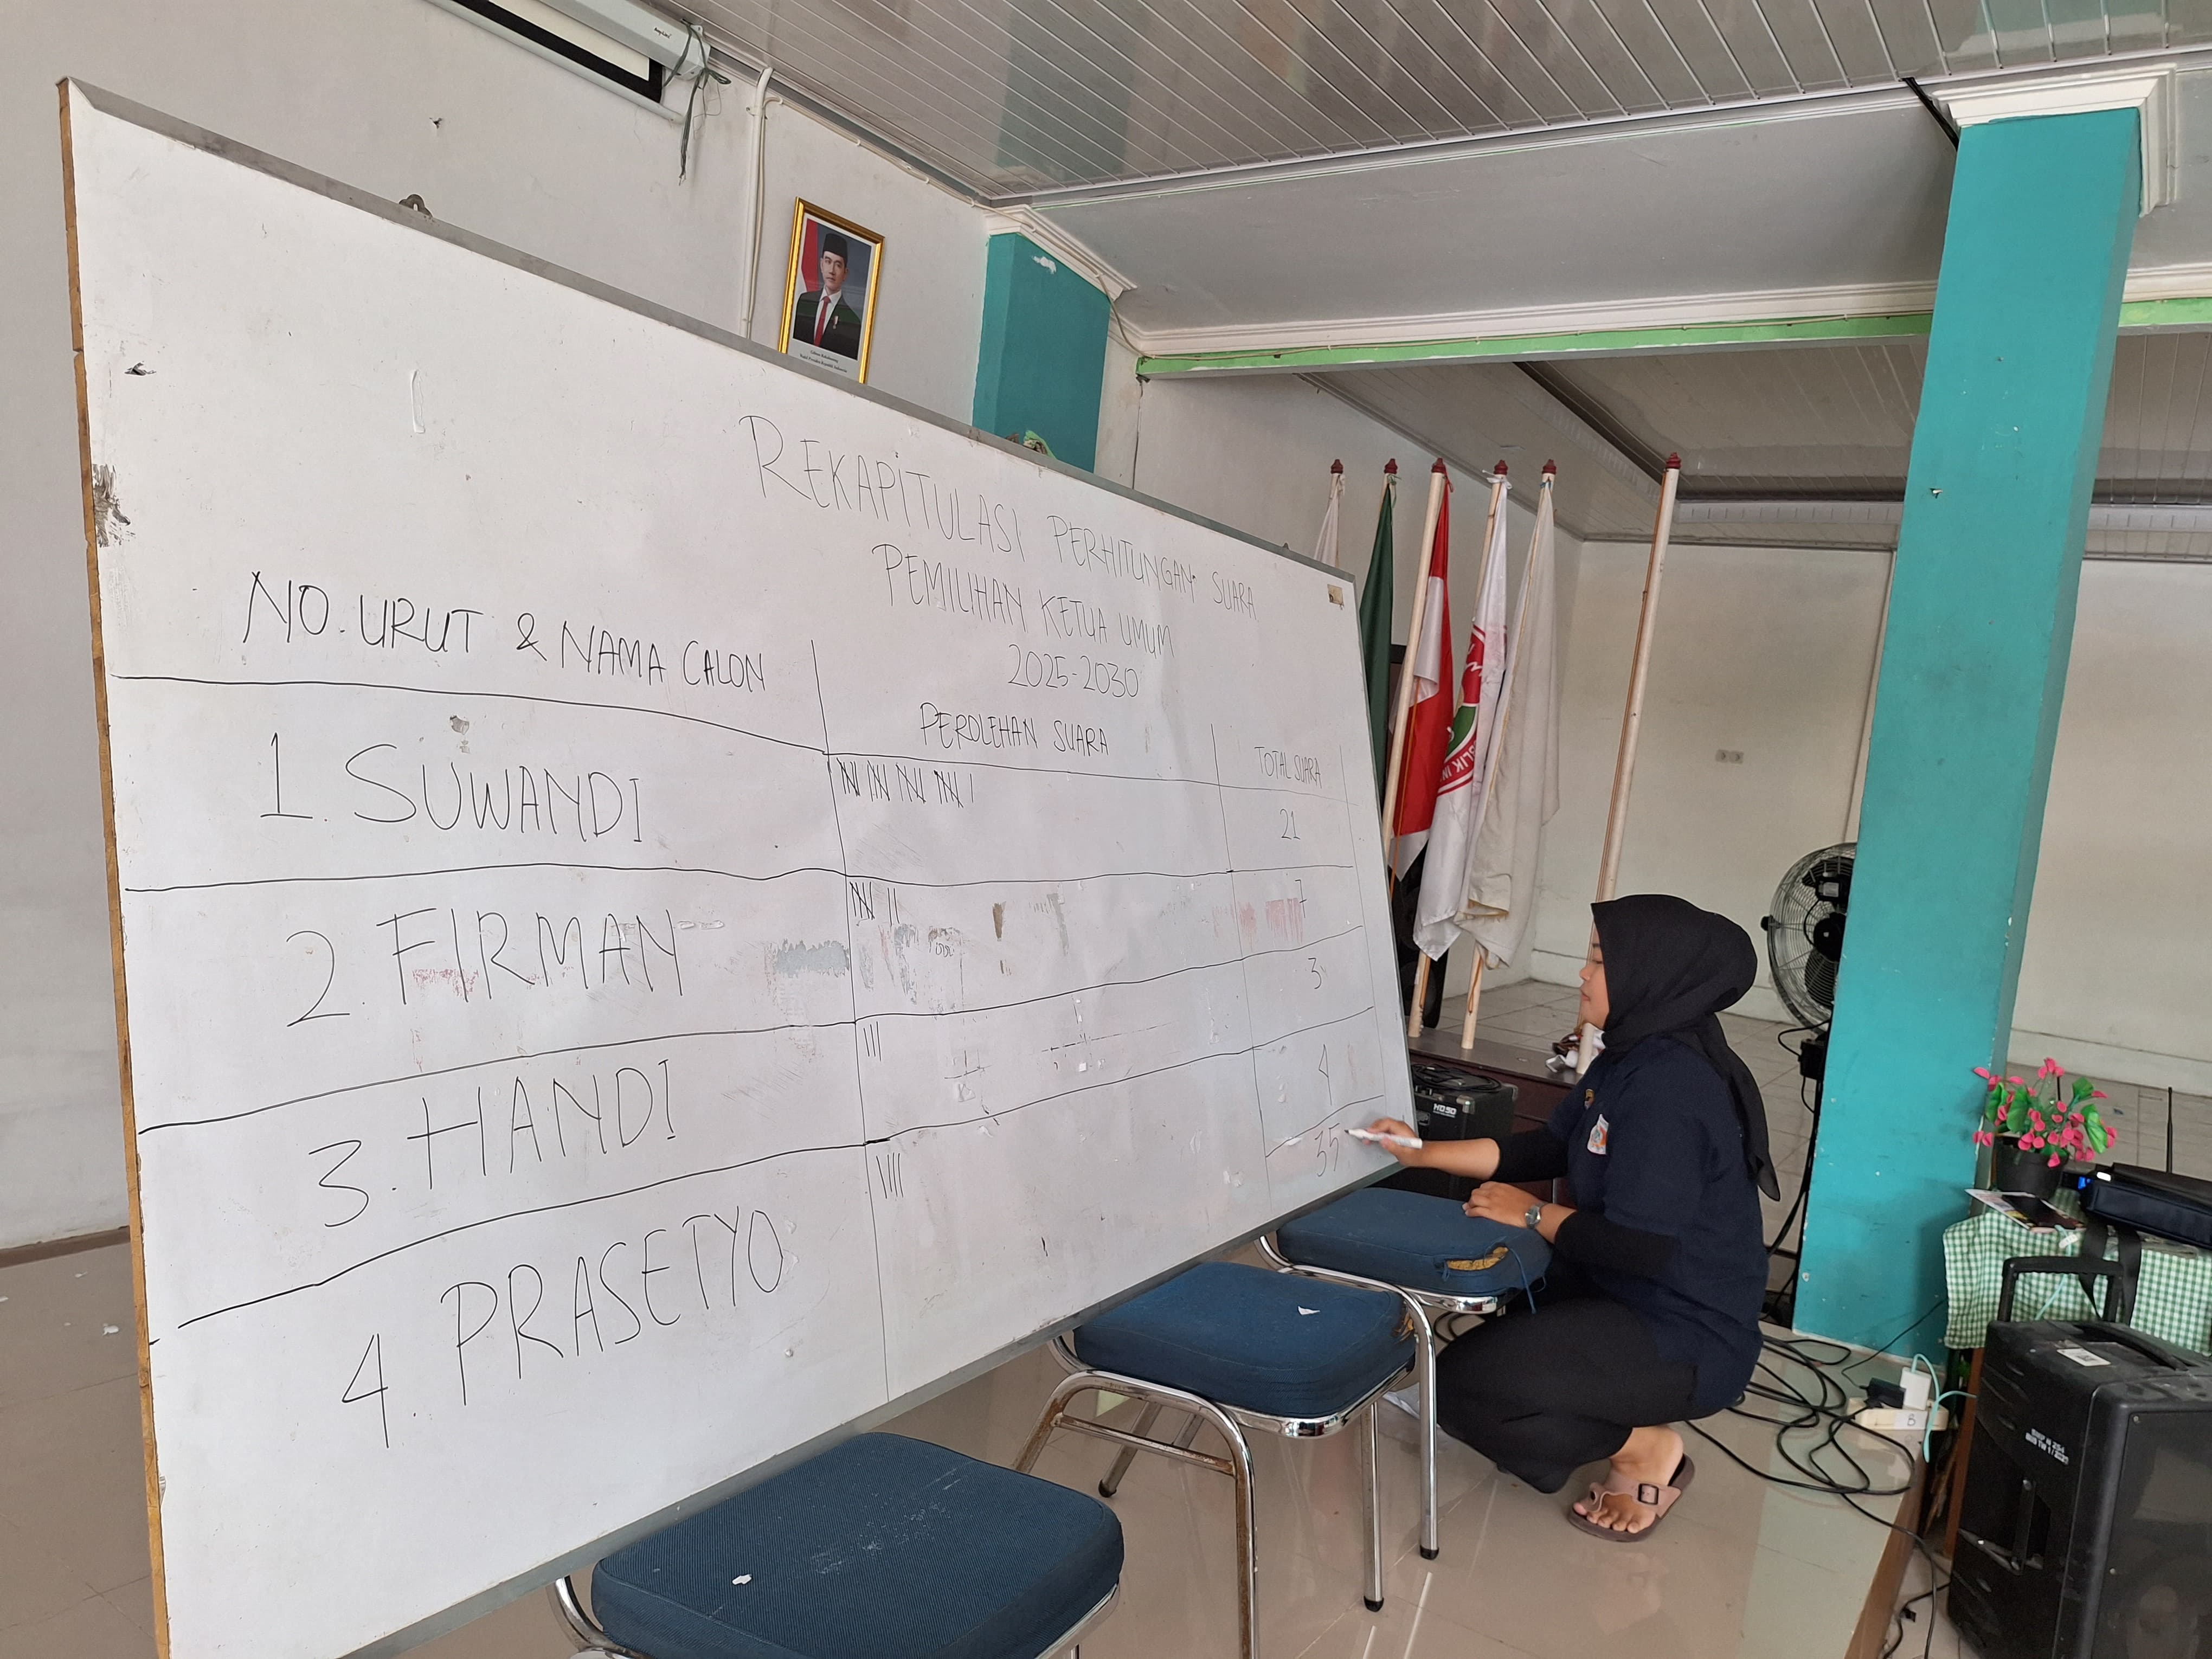 REKAPITULASI PERHITUNGAN SUARA
PEMILIHAN KETUA UMUM
2025-2030
NO. URUT & NAMA CALON
PEROLEHAN SUARA
TOTAL SUARA
1. SUWANDI
21
2. FIRMAN
7
3. HANDI
3
4. PRASETYO
4
35
HD50
BLIK IN
B